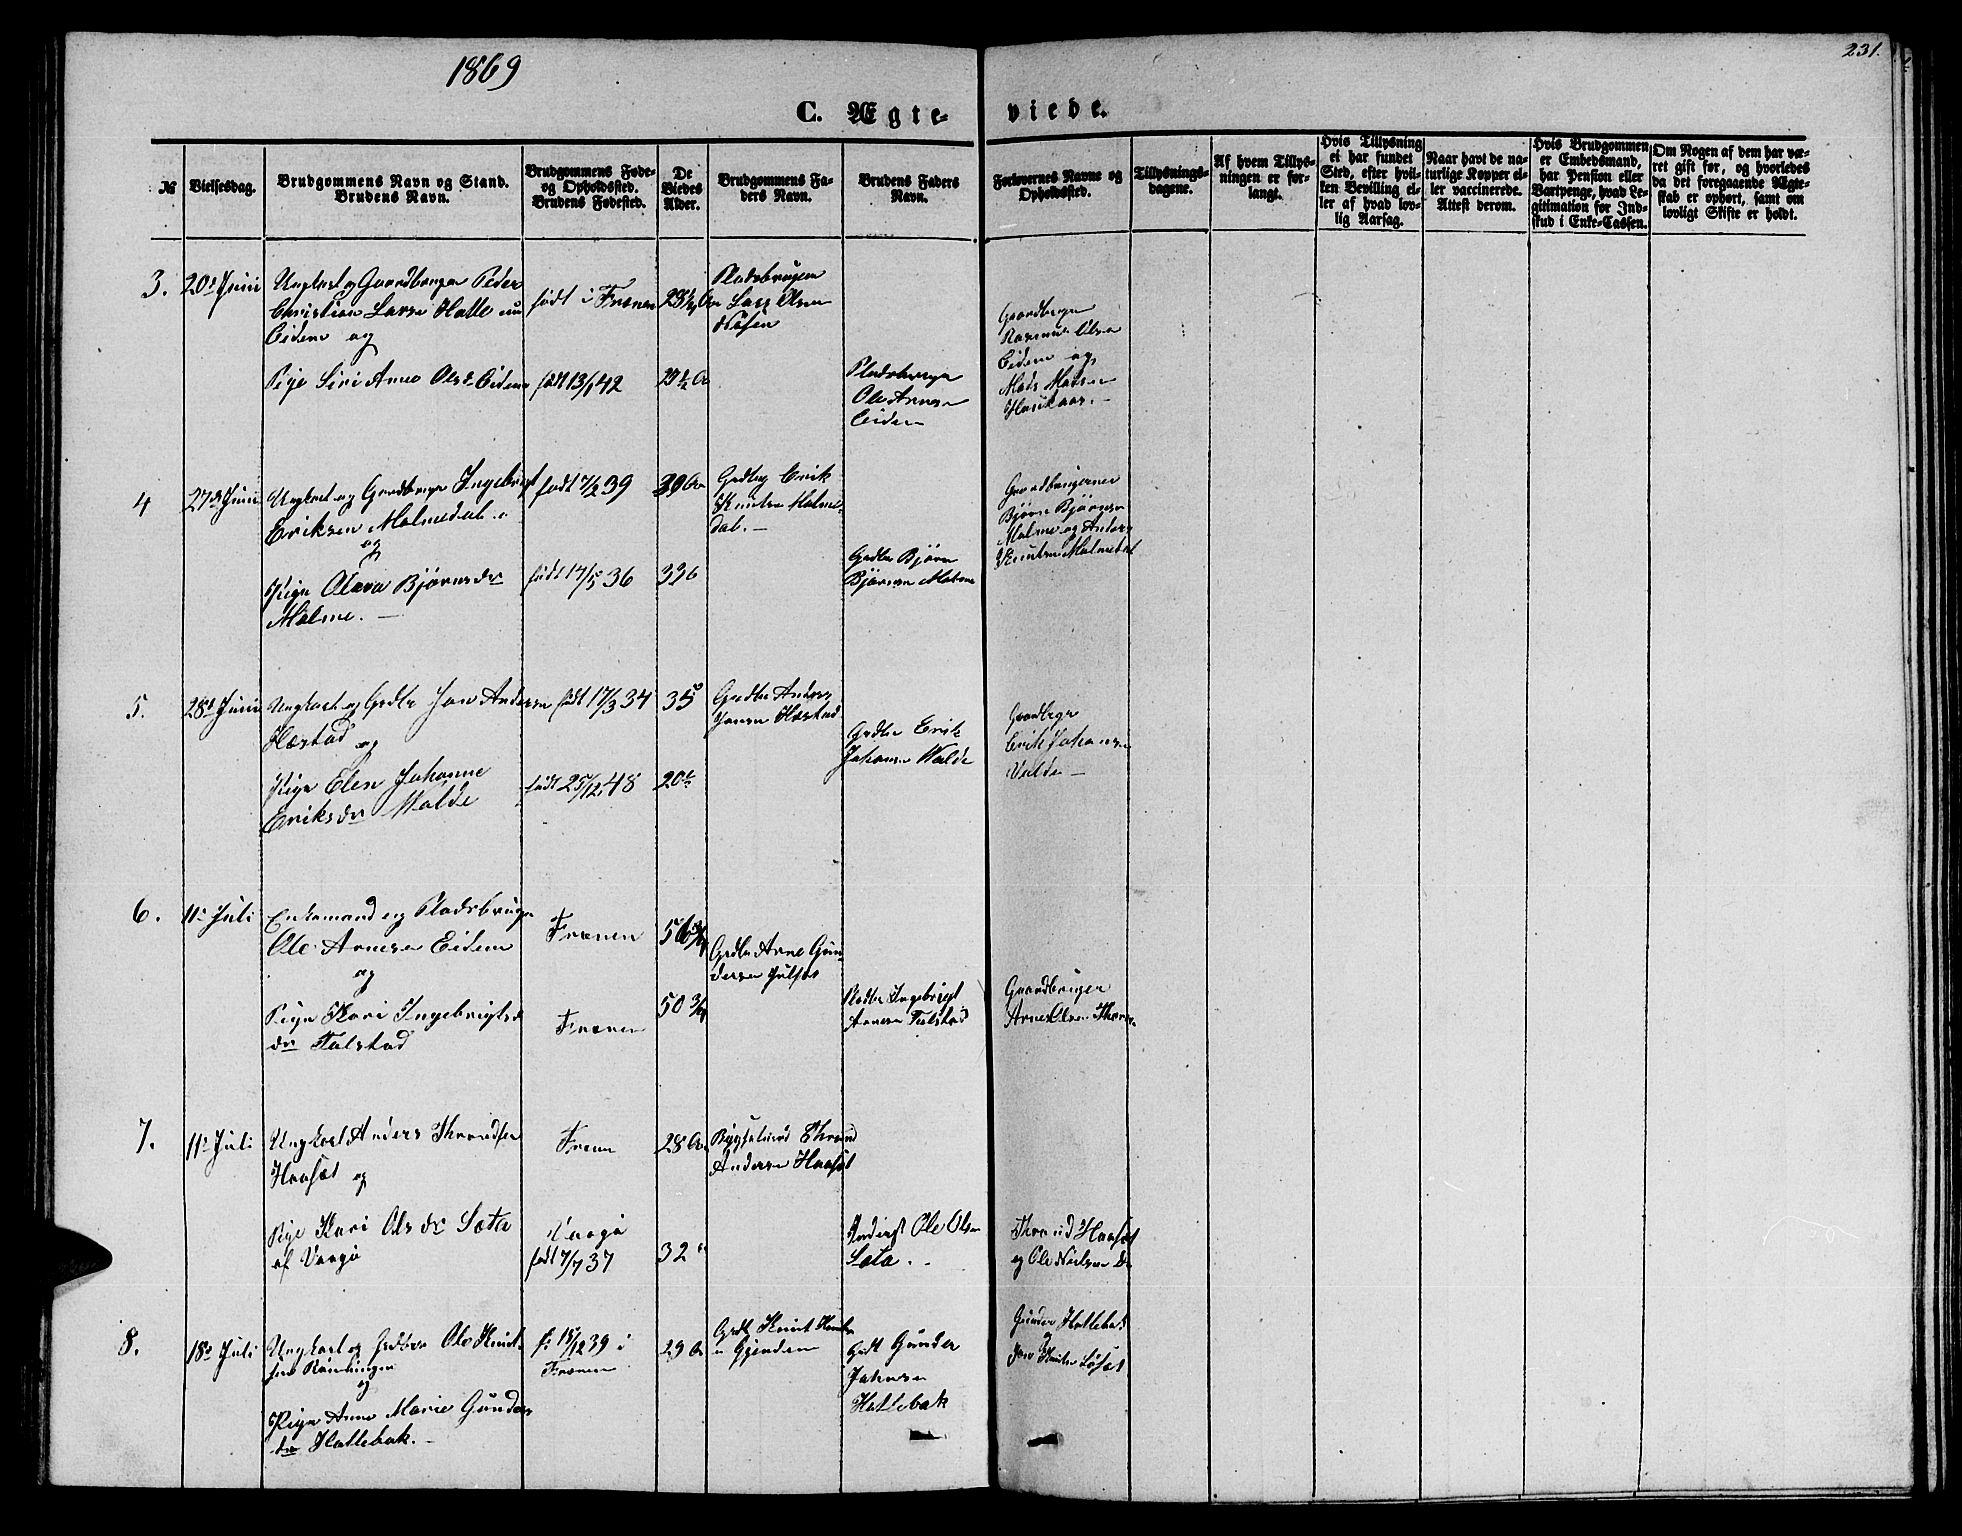 1869
231.
C. Ægte-
viede.
№
Vielsesdag.
Brudgommens Navn og Stand.
Brudens Navn.
Brudgommens Føde-
og Opholdssted.
Brudens Fødested.
De
Viedes
Alder.
Brudgommens Fa-
ders Navn.
Brudens Faders
Navn.
Forlovernes Navne og
Opholdssted.
Tillysnings-
dagene.
Af hvem Tillys-
ningen er for-
langt.
Hvis Tillysning
ei har fundet
Sted, efter hvil-
ken Bevilling el-
ler af hvad lov-
lig Aarsag.
Naar havt de na-
turlige Kopper el-
ler vaccinerede.
Attest derom.
Hvis Brudgommen
er Embedsmand,
har Pension eller
Vartpenge, hvad Le-
gitimation for Ind-
skud i Enke-Cassen.
Om Nogen af dem har væ-
ret gift før, og hvorledes
da det foregaaende Ægte-
skab er ophørt, samt om
lovligt Skifte er holdt.
3.
20de Juni
Ungkarl og Gaardbruger Peder
Christian Larsen Halle
Eidem og
Pige Siri Anne Olsdr Eidem
født i Frænen
født 13/1 42
Pladsbruger
Lars Olsen
Pladsbruger
Ole Arnesen
Eidem
Gaardbruger
Rasmus Olsen
Eidem og
Mads Madsen
4
27de Juni
Ungkarl og Gaardbruger Ingebrigt
Eriksen Malmedal
og
Pige Olava Bjørnsdr
Malme. —
født 7/2 39
født 14/5 36
Grdbr Erik
Knutsen Malme-
dal. —
Grdbr Bjørn
Bjørnsen Malme
Gaardbrugerne
Bjørn Bjørnsen
Malme og Anders
Knutsen Malmedal
5.
28de Juni
Ungkarl og Grdbr Jon Andersen
Hostad og
Pige Elen Johanne
Eriksdr Malde
født 17/3 34
født 25/12 48
35
20
Grdbr Anders
Jonsen Hostad
Grdbr Erik
Johansen Walde
Gaardbrgr
Erik Johansen
6.
11te Juli
Enkemand og Pladsbruger
Ole Arnesen Eidem
og
Pige Kari Ingebrigts-
dr Talstad
Frænen
Frænen
50 3/4
Grdbr Arne Gun-
dersen Julset
Pladsbr Ingebrigt
Arnesen Talstad
Gaardbruger
Arne Olsen
7.
11te Juli
Ungkarl Anders Throndsen
Haaset og
Pige Kari Olsdr Sæta
af Vaagø
Frænen
Vaagø
født 7/7 37
28 Aar
32 "
Bygselmand Thrond
Andersen Haaset
Ole Olsen
Sæta.
Thrond Haaset
og Ole Nielsen
8.
18de Juli
Ungkarl og Grdbr Ole Knut-
sen
og
Pige Anne Marie Gunders-
dr Hattebak. —
f: 15/12 39 i
Frænen
29 Aar
Grdbr Knut
Gjendem
Grdbr Gunder
Johnsen
Hattebak
Gunder Hattebak
og